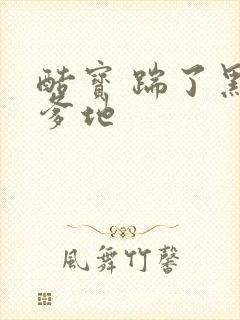 酷寶踹了黑
爹地
風舞竹馨